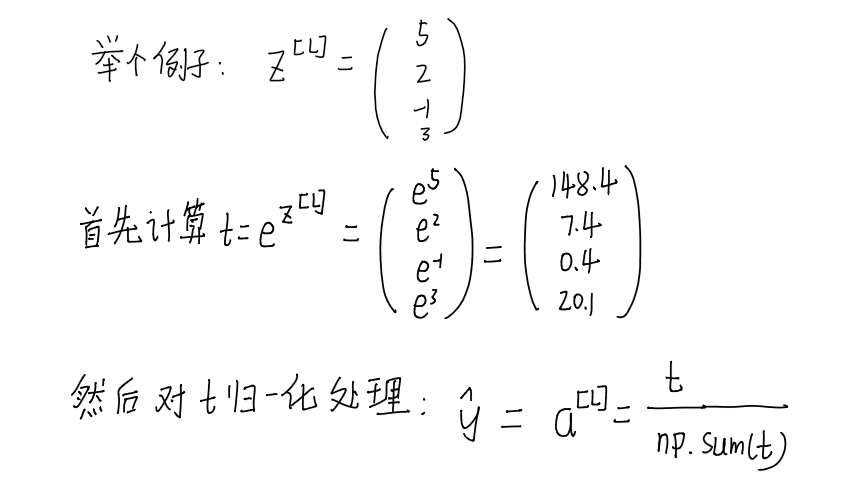 举个例子: z^[L] = (5 2 -1 3)
首先计算 t=e^z^[L] = (e^5 e^2 e^-1 e^3) = (148.4 7.4 0.4 20.1)
然后对t归一化处理: ŷ = a^[L] = t / np.sum(t)